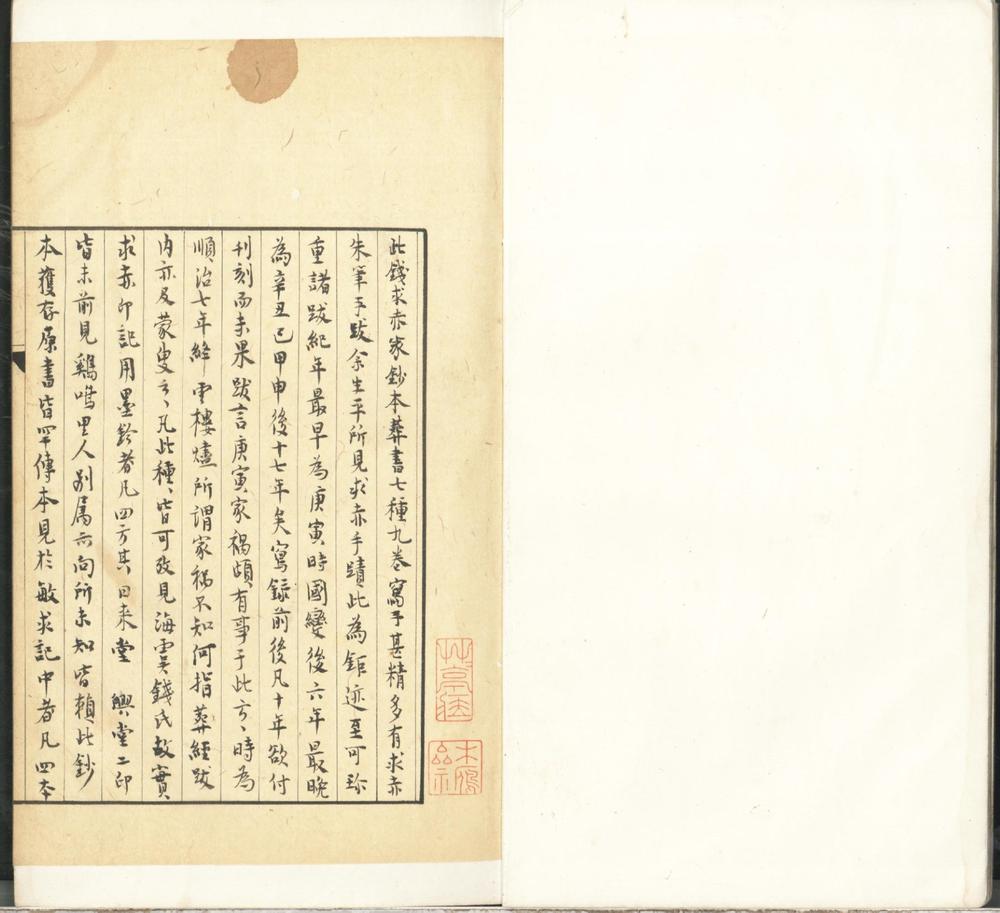 此錢求赤家鈔本葬書七種九卷寫手甚精多有求赤
朱筆手跋余生平所見求赤手蹟此為鉅迹至可珍
重諸跋紀年最早為庚寅時國變後六年最晚
為辛丑已甲申後十七年矣寫錄前後凡十年欲付
刊刻而未果跋言庚寅家禍頗有事于此云〻時為
順治七年絳雲樓燼所謂家禍不知何指葬經跋
內亦及蒙叟云〻凡此種〻皆可攷見海虞錢氏故實
求赤印記用墨鈐者凡四方其曰來堂 興堂二印
皆未前見鷄鳴里人別属亦向所未知皆賴此鈔
本獲存原書皆罕傳本見於敏求記中者凡四本